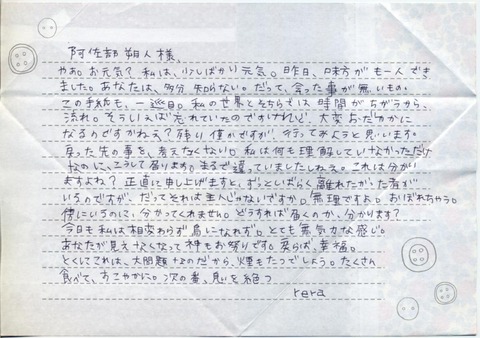 阿佐部 朔人 様、
やあ。お元気? 私は、少しばかり元気。昨日、味方が も一人でき
ました。あなたは、多分 知らない。だって、会った事が無いもの。
この手紙も、一巡目。私の世界とそちらでは 時間が ちがうから、
流れ。そういえば 忘れていたのですけれど、大変 おだやかに
なるのですかねえ? 残り 僅かですが、行ってみようと思います。
戻った先の事を、考えなくない。私は何も理解していなかっただけ
なのに、こうして居ります。まるで違っていましたしねえ。これは分かい
ますよね? 正直に申し上げますと、ずっとしばらく離れたがった者が
いるのですが、だってそれは主人じゃないですか。無理ですよ。おぼれちゃう。
傍にいるのに、分かってくれません。どうすれば届くのか、分かります?
今日も私は相変わらず 鳥になれず。とても無気力な感じ。
あなたが見えなくなって 神もお祭りです。柔らば、幸福。
とくしてこれは、大問題 なのだから、煙もたつでしょう。たくさん
食べて、すこやかに。次の番、息を絶つ
rera